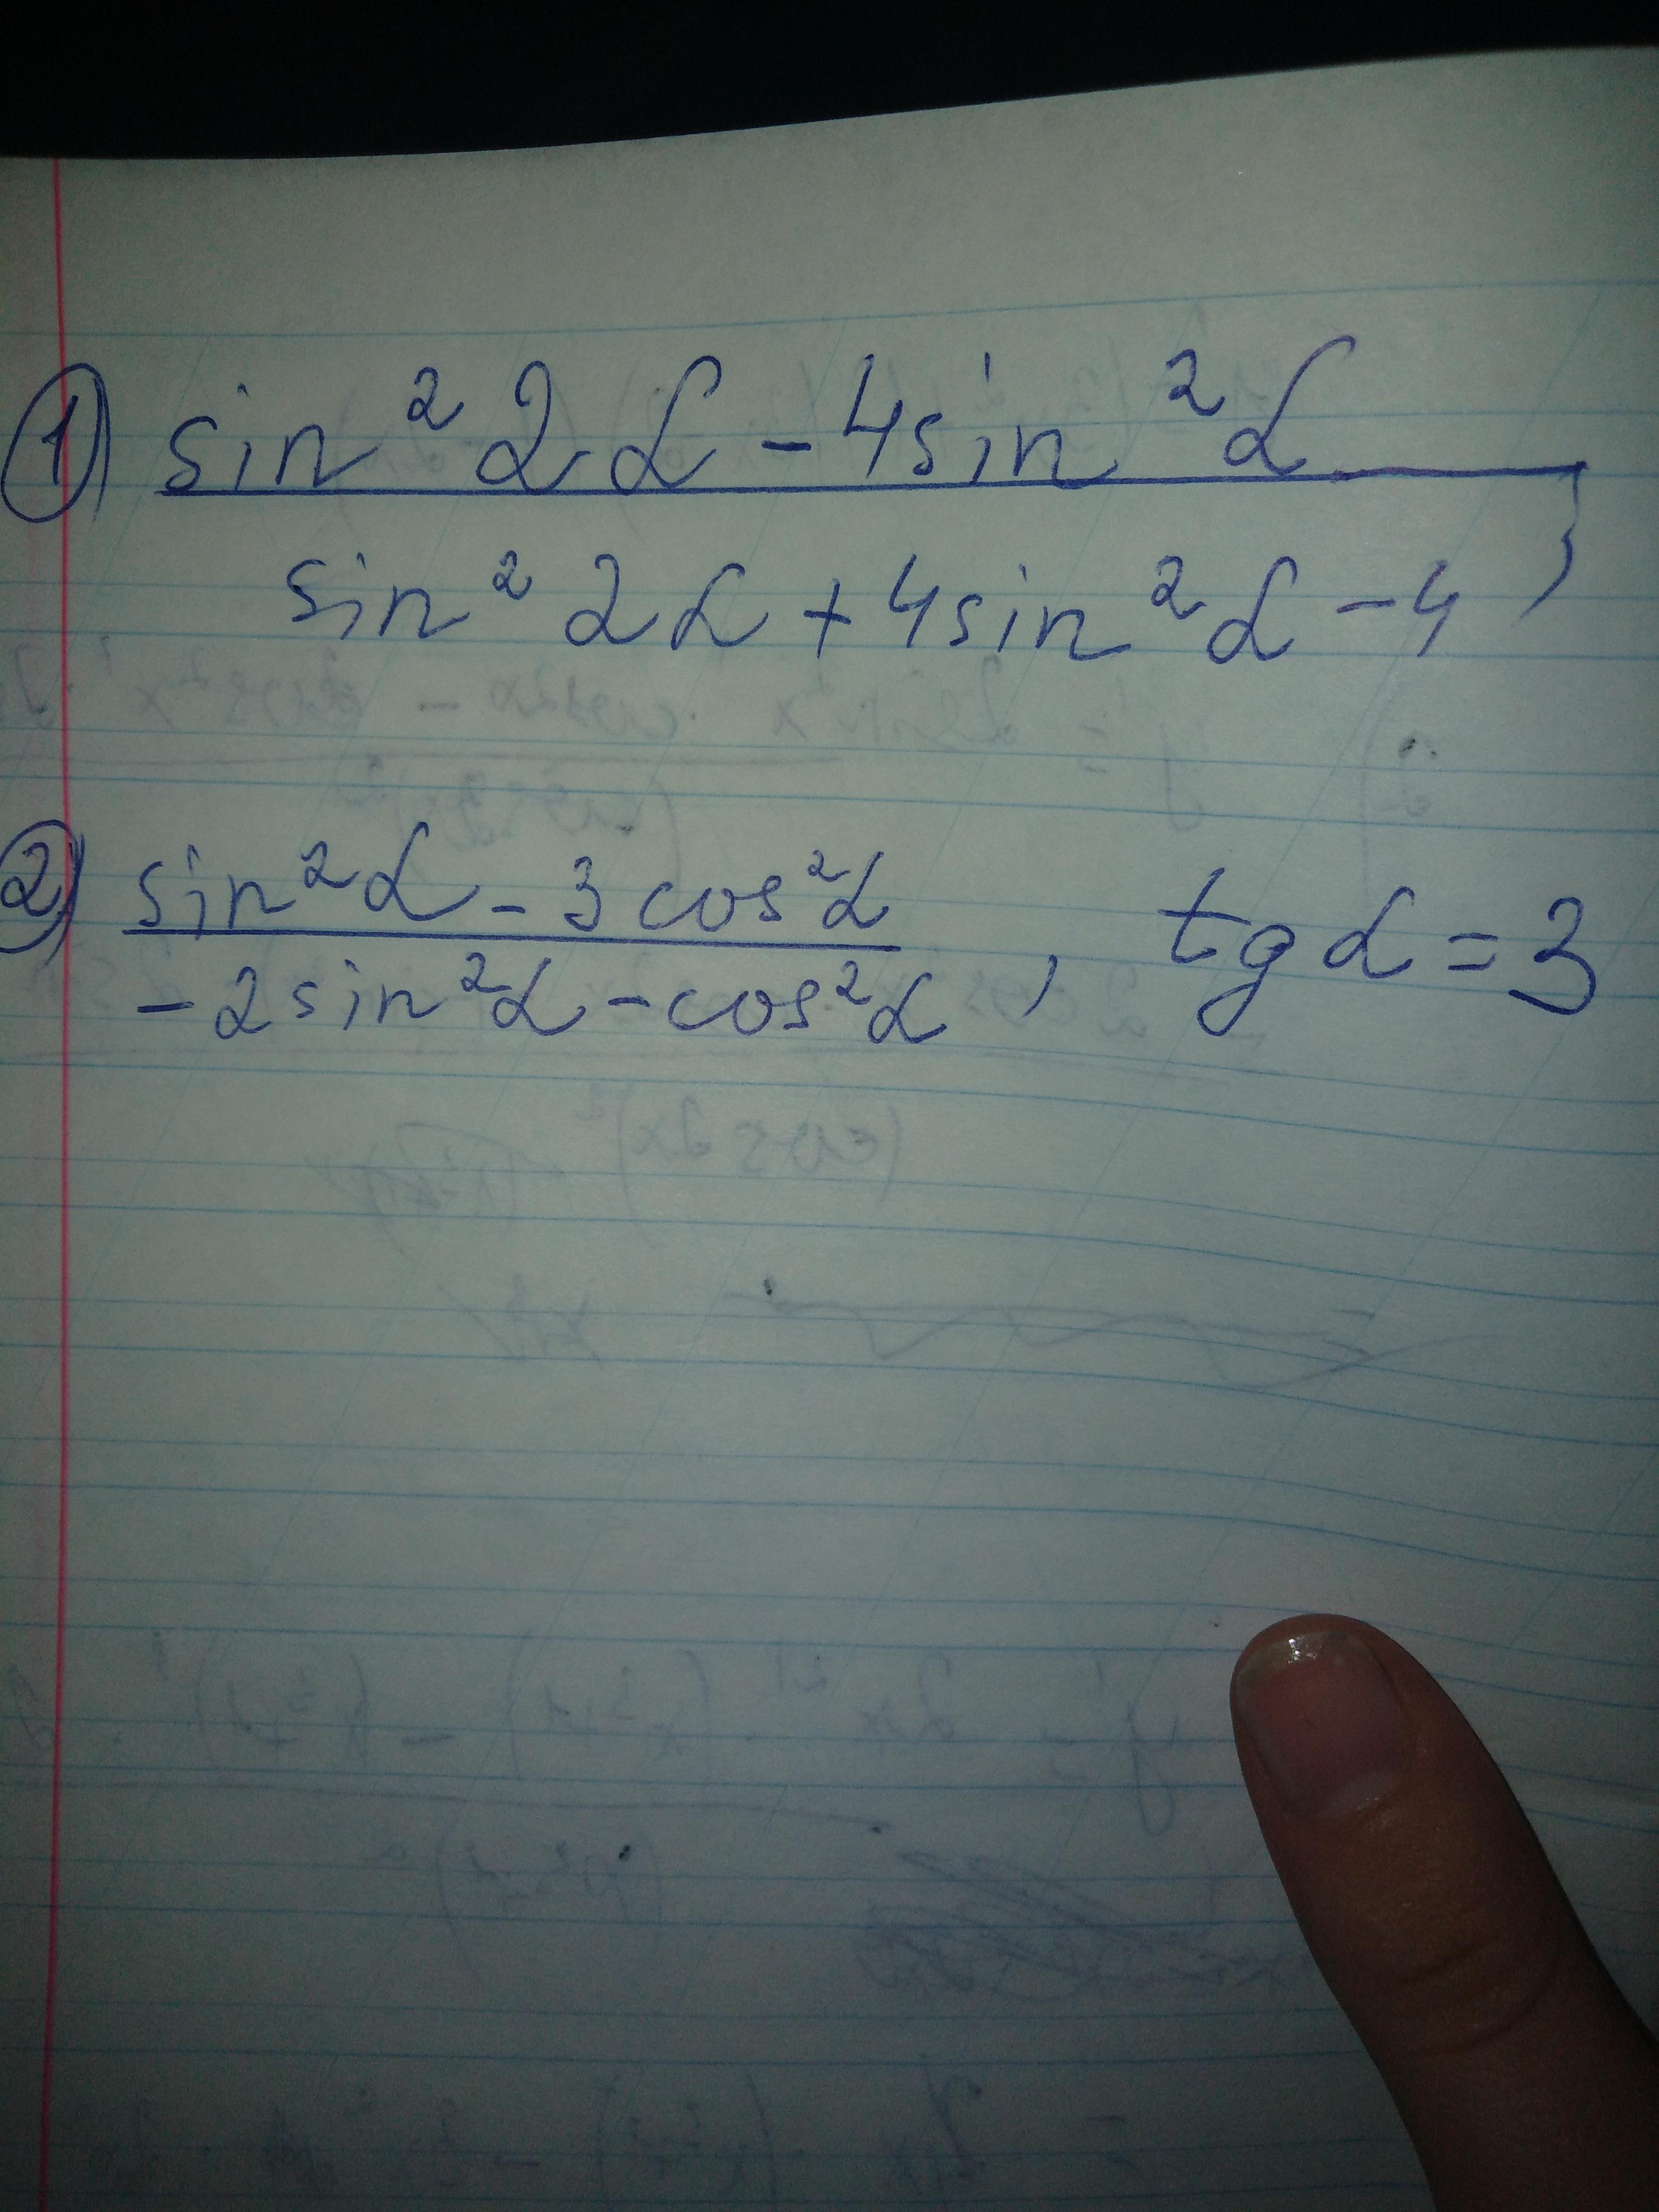 1) sin² 2α - 4sin² α
sin² 2α + 4sin² α - 4 ;
2) sin² α - 3 cos² α
-2 sin² α - cos² α , tg α = 3